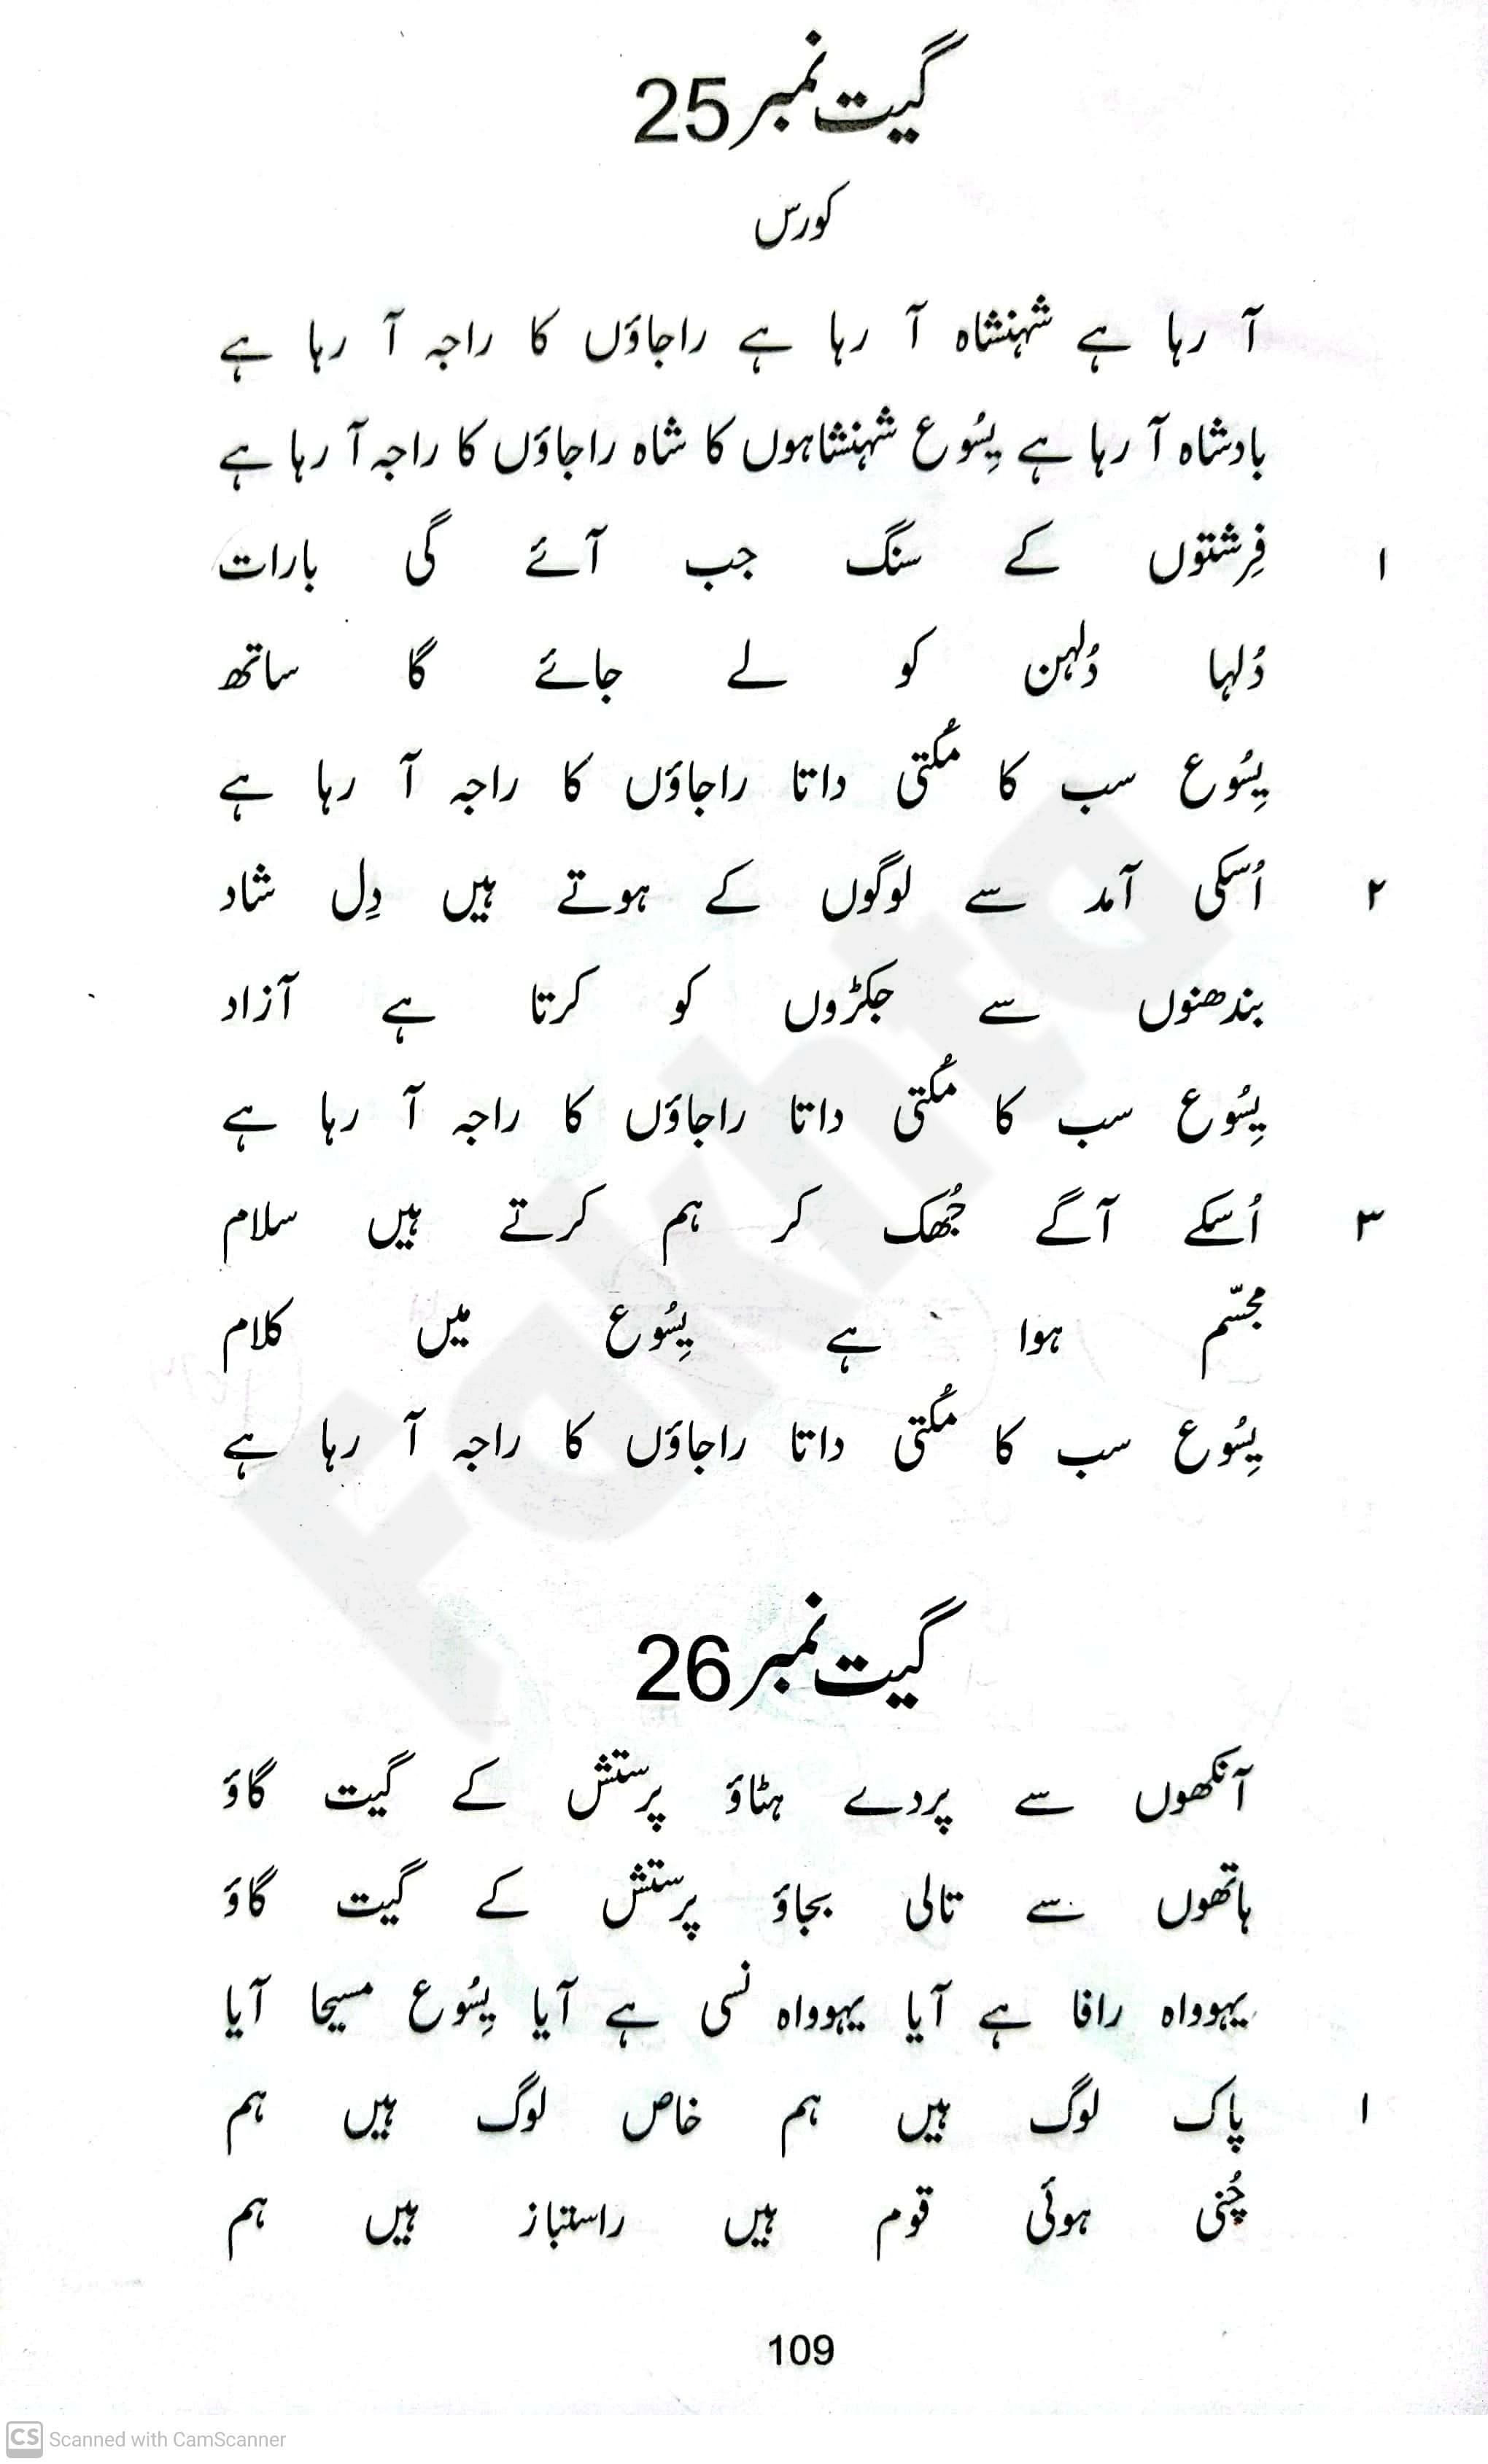 گیت نمبر 25
کورس
آ رہا ہے شہنشاہ آ رہا ہے راجاؤں کا راجہ آ رہا ہے
بادشاہ آ رہا ہے یِسُوع شہنشاہوں کا شاہ راجاؤں کا راجہ آ رہا ہے
۱ فِرشتوں کے سنگ جب آئے گی بارات
دُلہا دُلہن کو لے جائے گا ساتھ
یِسُوع سب کا مُکتی داتا راجاؤں کا راجہ آ رہا ہے
۲ اُسکی آمد سے لوگوں کے ہوتے ہیں دِل شاد
بندھنوں سے جکڑوں کو کرتا ہے آزاد
یِسُوع سب کا مُکتی داتا راجاؤں کا راجہ آ رہا ہے
۳ اُسکے آگے جُھک کر ہم کرتے ہیں سلام
مجسّم ہوا ہے یِسُوع میں کلام
یِسُوع سب کا مُکتی داتا راجاؤں کا راجہ آ رہا ہے
گیت نمبر 26
آنکھوں سے پردے ہٹاؤ پرستش کے گیت گاؤ
ہاتھوں سے تالی بجاؤ پرستش کے گیت گاؤ
یہوواہ رافا ہے آیا یہوواہ نسی ہے آیا یِسُوع مسیحا آیا
۱ پاک لوگ ہیں ہم خاص لوگ ہیں ہم
چُنی ہوئی قوم ہیں راستباز ہیں ہم
109
Fakhta
CS Scanned with CamScanner